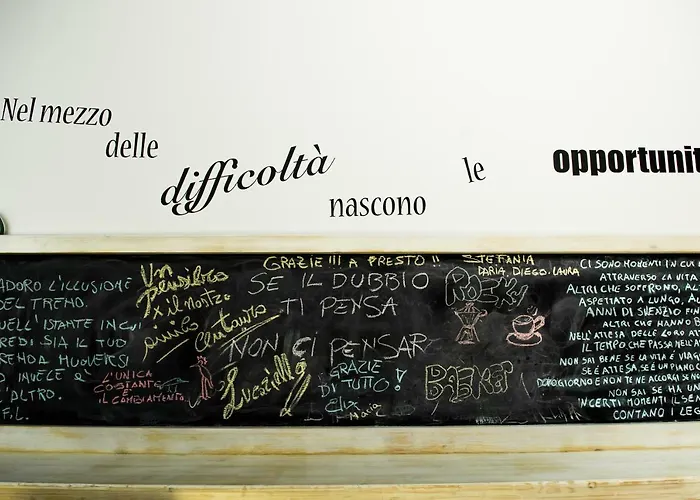 Nel mezzo
delle
difficoltà
nascono
le
opportunit
ADORO L'ILLUSIONE
DEL TRENO.
QUELL'ISTANTE IN CUI
REDI SIA IL TUO
RENDA MUOVERSI
O INVECE È
L'ALTRO.
F.L.
L'UNICA
COSTANTE
È
IL CAMBIAMENTO
Un
pensiero
x il nostro
piccolo
centauro
Lucariello
GRAZIE!!! A PRESTO!!
SE IL DUBBIO
TI PENSA
NON CI PENSAR
GRAZIE
DI TUTTO!
Elix
Maria
STEFANIA
DARIA, DIEGO, LAURA
ROCKY
CI SONO MOMENTI IN CUI
ATTRAVERSO LA VITA
ALTRI CHE SOFFRONO, AL
ASPETTATO A LUNGO, AL
ANNI DI SILENZIO FIN
ALTRI CHE HANNO
NELL'ATTESA DELLE LORO
IL TEMPO CHE PASSA NELL'A
NON SAI BENE SE LA VITA È VIA
SE È ATTESA, SE È UN PIANO
DOPO GIORNO E NON TE NE ACCORGI
NON SAI SE HA UN
INCERTI MOMENTI IL SE
CONTANO I LEG